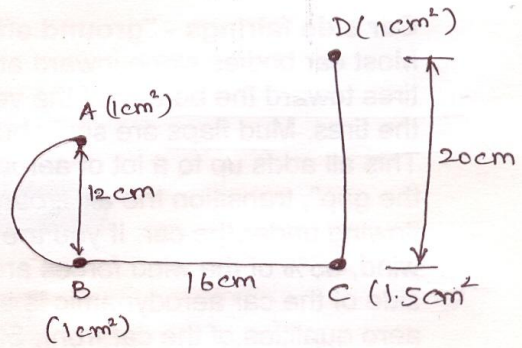 D (1cm²)
A (1cm²)
12cm
20cm
B
16cm
C (1.5cm²
(1cm²)